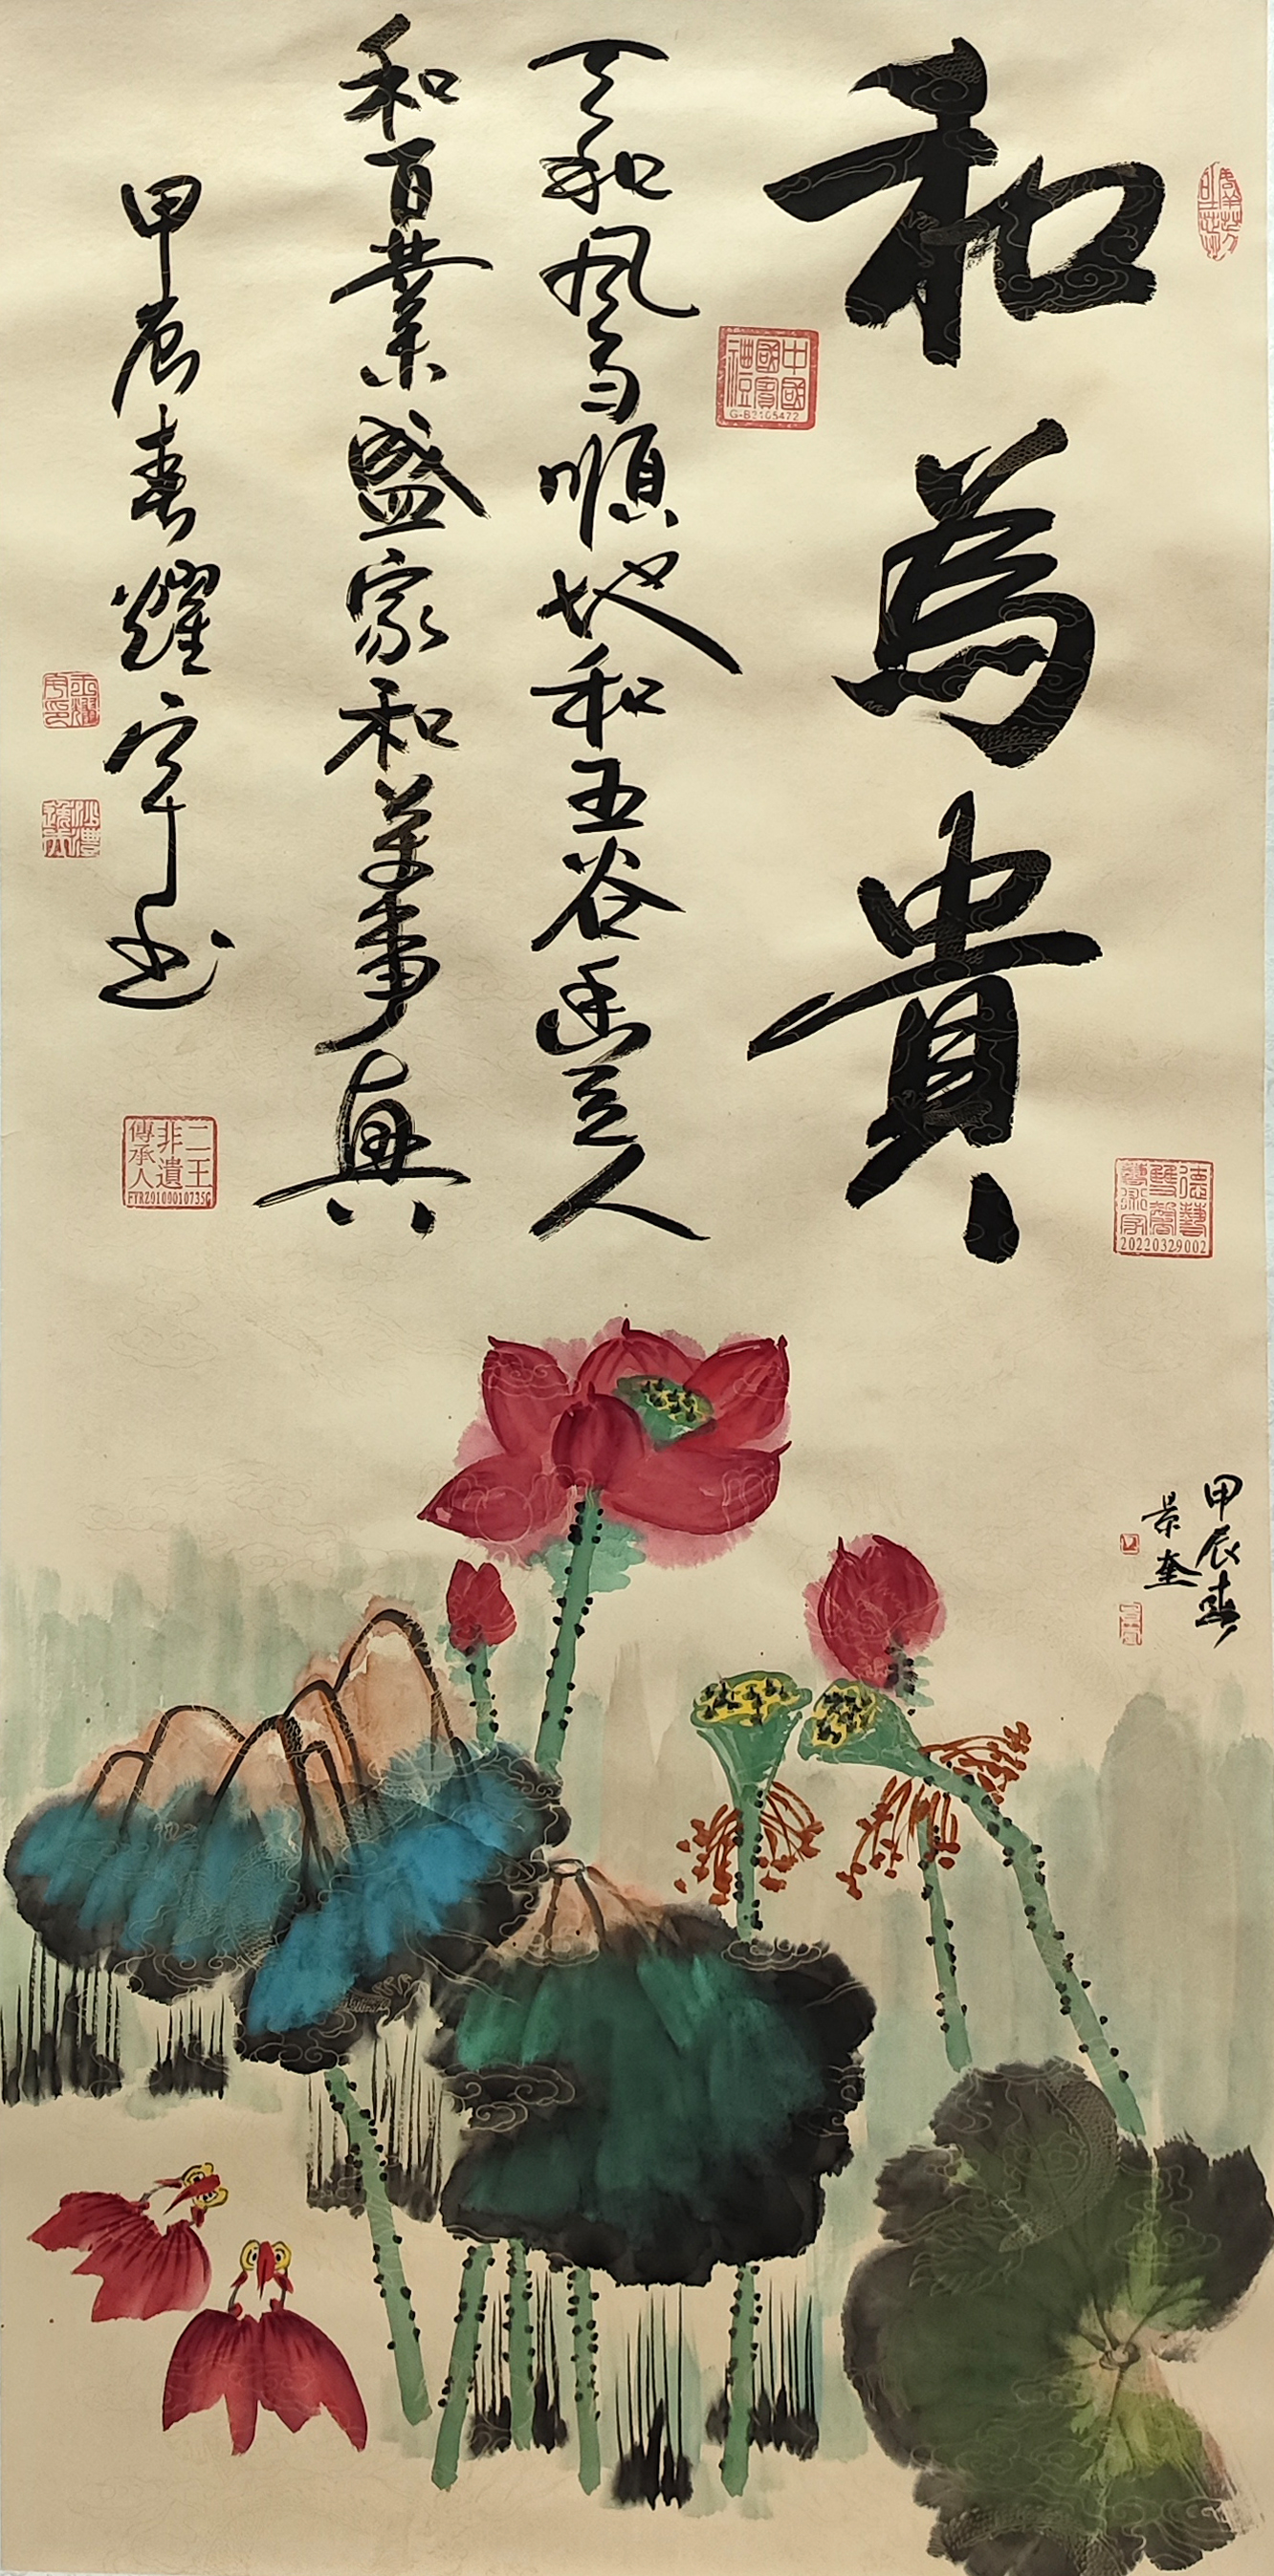 和為貴
天和風雨順地和五谷豐登人
和百業盛家和萬事興
甲辰春耀宇书
中國
國賓
禮
G-B3105472
德藝
雙馨
藝術家
20220329002
二王
非遺
傳承人
FYRZ9100010735G
甲辰春
景奎